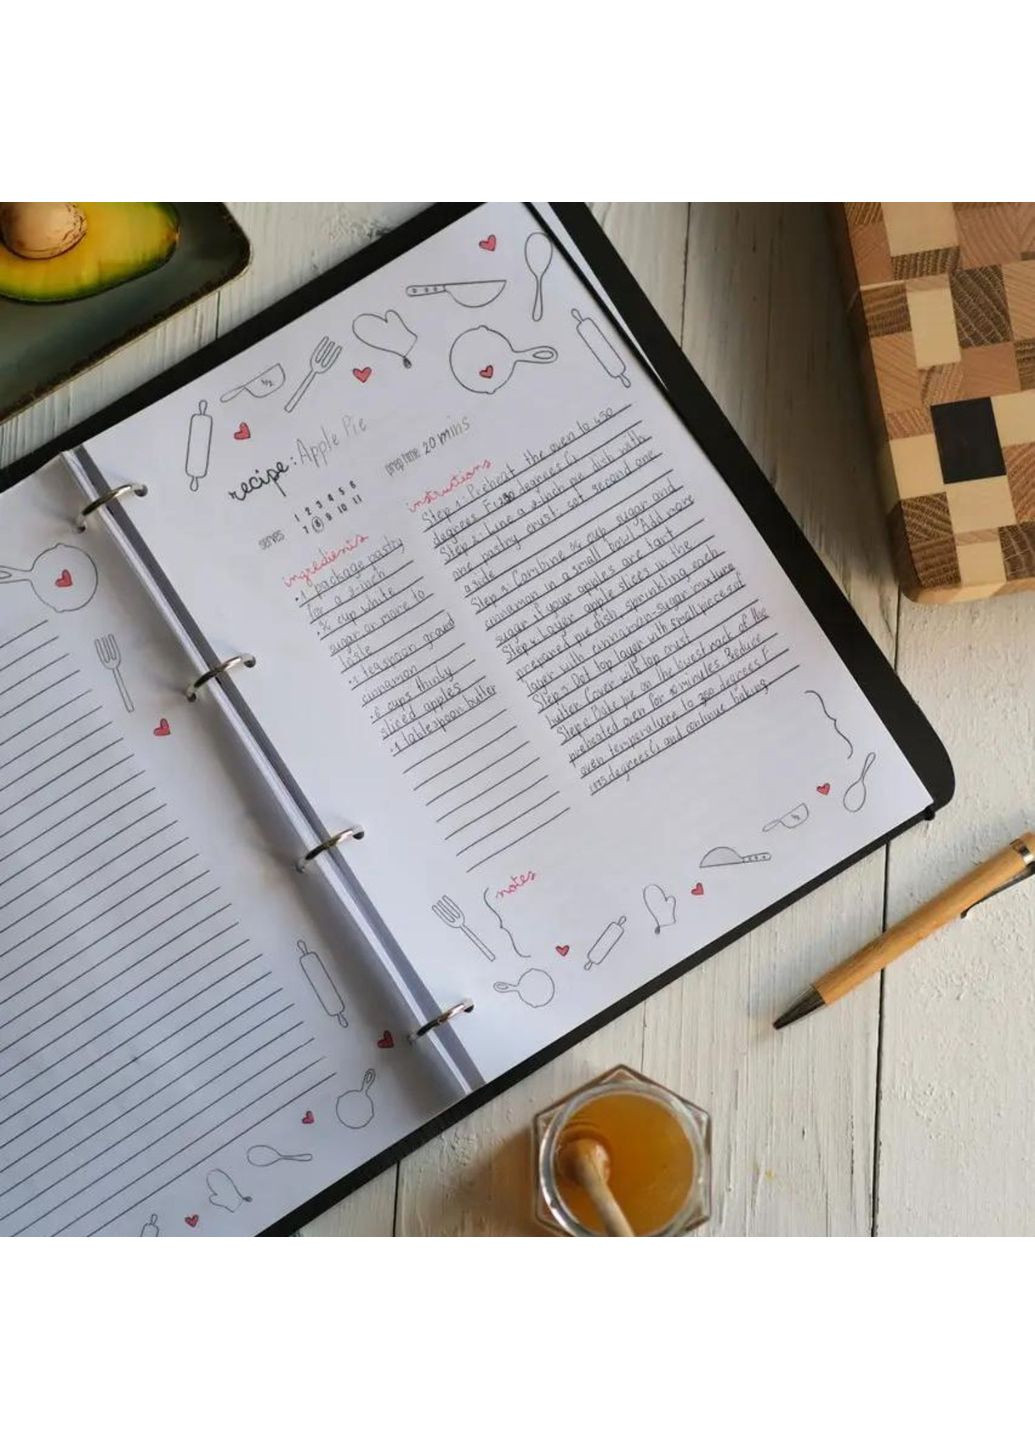 recipe: Apple Pie
prep time: 20 mins
serves 1 2 3 4 5 6
7 8 9 10 11
ingredients
• 1 package pastry
for a 9-inch
• ¾ cup white
sugar or more to
taste
• 1 teaspoon ground
cinnamon
• 6 cups thinly
sliced apples
• 1 tablespoon butter
instructions
Step 1: Preheat the oven to 450
degrees F (230 degrees C)
Step 2: Line a 9-inch pie dish with
one pastry crust. set second one
aside
Step 3: Combine ¾ cup sugar and
cinnamon in a small bowl. Add more
sugar if your apples are tart
Step 4: Layer apple slices in the
prepared pie dish, sprinkling each
layer with cinnamon-sugar mixture
Step 5: Dot top layer with small pieces of
butter. Cover with top crust
Step 6: Bake pie on the lowest rack of the
preheated oven for 10 minutes. Reduce
oven temperature to 350 degrees F
degrees C) and continue baking
notes
½
½